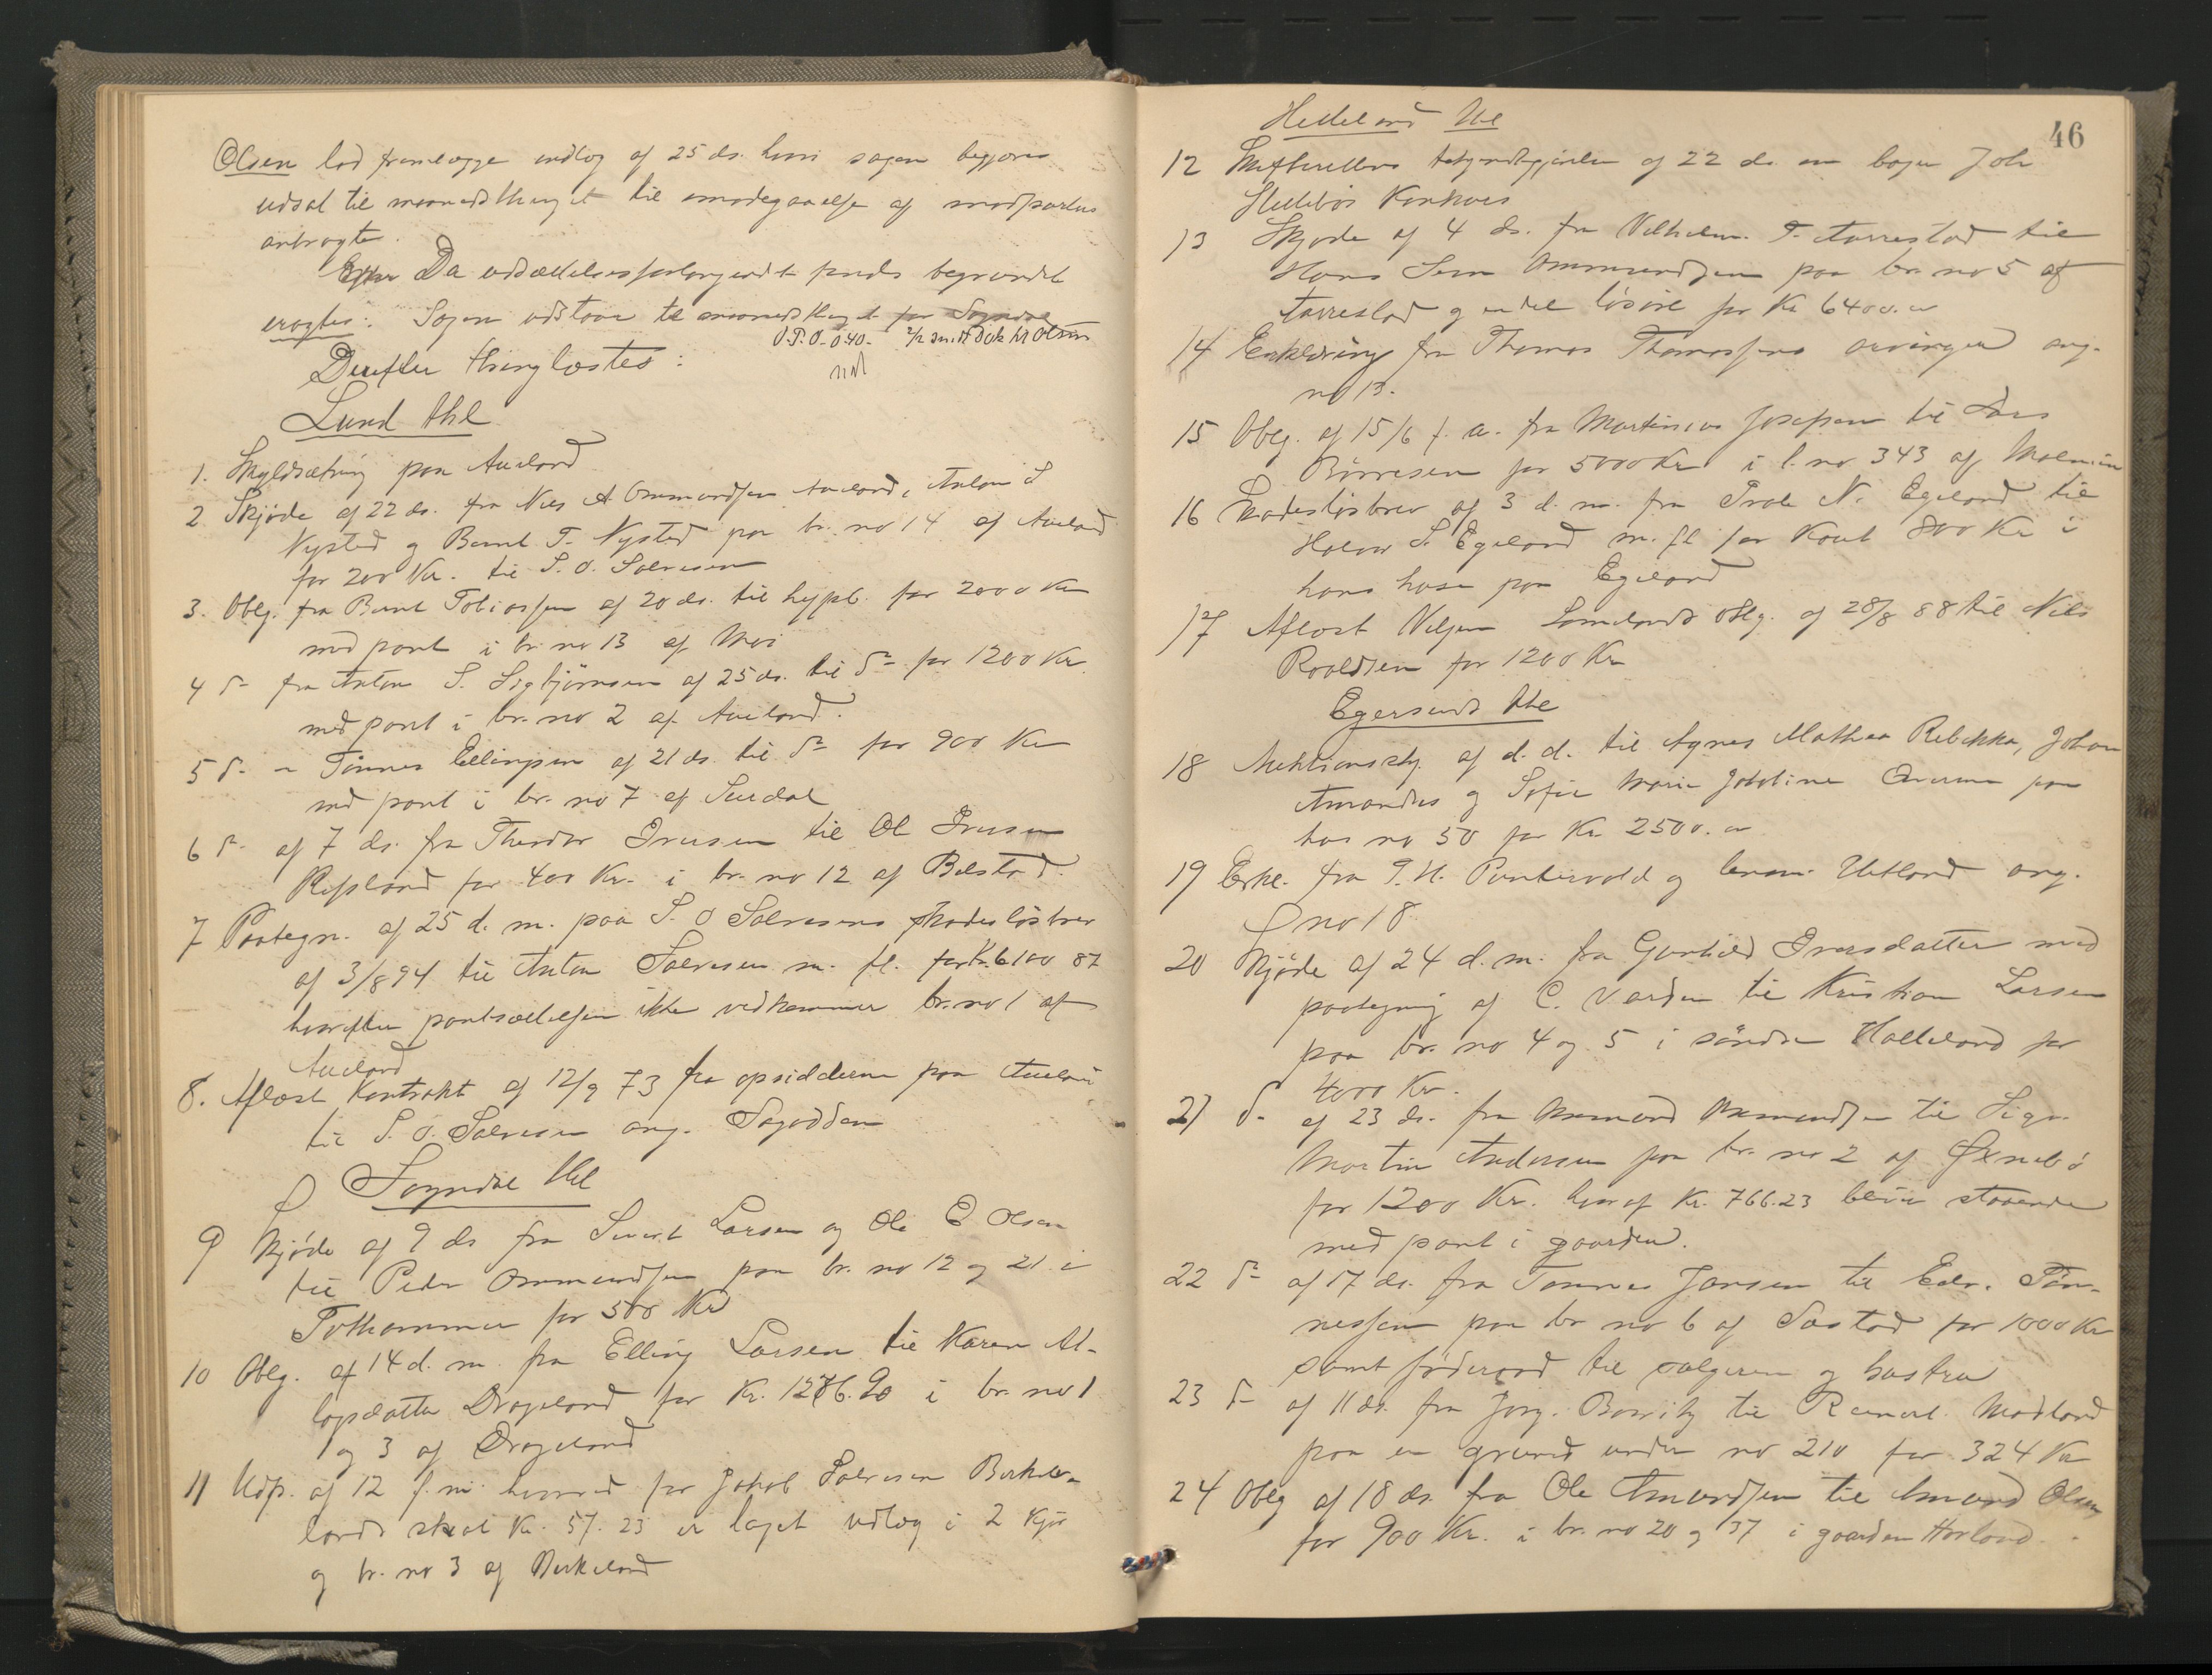 Olsen lod fremlægge indlæg af 25 ds. hvori sagen begjæres
udsat til maanedsthinget til imødegaaelse af modpartens
anbragte.
Efter Da udsættelsesforlangendet findes begrundet
eragtes: Sagen udstaar til maanedsthinget for Sogndal
O.T.O. 0.40.
Derefter thinglæstes:
Lund thl
1. Skyldsætning paa Aueland
2 Skjøde af 22 ds. fra Nils A Ommundsen Aueland, Anton S
Nysted og Bernt T. Nysted paa br. no 14 af Aueland
for 200 Kr. til S. O. Salvesen
3. Oblg. fra Bernt Tobiassen af 20 ds. til hypb. for 2000 Kr
med pant i br. no 13 af Moi
4 do fra Anton S. Sigbjørnsen af 25 ds. til do for 1200 Kr
med pant i br. no 2 af Aueland.
5 do - Tønnes Ellingsen af 21 ds. til do for 900 Kr
med pant i br. no 7 af Surdal
6 do af 7 ds. fra Theodor Iversen til Ol Iversen
Refsland for 400 Kr. i br. no 12 af Bilstad.
7 Paategn. af 25 d. m. paa S. O Salvesens skadesløsbrev
af 3/8 94 til Anton Salvesen m. fl. for Kr. 6100 87
hvorefter pantsættelsen ikke vedkommer br. no 1 af
Aueland
8. Aflæst Kontrakt af 12/9 73 fra opsidderne paa Aueland
til S. O. Salvesen ang. Sagodden
Sogndal thl
9 Skjøde af 9 ds fra Sivert Larsen og Ole E Olsen
til Peder Ommundsen paa br. no 12 og 21 i
Tothammer for 500 Kr
10 Oblg. af 14 d. m. fra Elling Larsen til Karen At-
lagsdatter Drageland for Kr. 1276.90 i br. no 1
og 3 af Drageland
11 Udp. af 12 f. m. hvorved for Jakob Salvesen Birke-
lands skat Kr. 57. 23 er taget udlæg i 2 kjør
og br. no 3 af Birkeland
46
Helleland thl
12 Skifterettens bekjendtgjørelse af 22 ds. om bager Joh
Hellebøs Konkurs
13 Skjøde af 4 ds. fra Vilhelm T. Aarrestad til
Hans Sem Ommundsen paa br. no 5 af
Aarrestad og endel løsøre for Kr 6400.00
14 Erklæring fra Thomas Thomassens arvinger ang.
no 13.
15 Oblg. af 15/6 f. a. fra Martinius Josefsen til Lars
Børresen for 5000 Kr i l. no 343 af
16 Skadesløsbrev af 3 d. m. fra Trole N. Egeland til
Halvor S. Egeland m. fl for Kaut 800 Kr i
hans huse paa Egeland
17 Aflæst Veljen Lomelands oblg. af 28/8 88 til Nils
Roaldsen for 1200 Kr
Egersund thl
18 Auktionsskj. af d. d. til Agnes Mathea Rebekka, Johan
Amandus og Sofie Marie Jakobine paa
hus no 50 for Kr 2500.00
19 Erkl. fra P. H. Puntervold og Enom. Uteland ang.
no 18
20 Skjøde af 24 d. m. fra Gunhild Iversdatter med
paategning af C. Varden til Kristian Larsen
paa br. no 4 og 5 i søndre Halleland for
4000 Kr.
21 do af 23 ds. fra Asmund Asmundsen til Sigv.
Martin Andersen paa br. no 2 af Øxnebø
for 1200 Kr. hvoraf Kr. 766.23 bliver staaende
med pant i gaarden.
22 do af 17 ds. fra Tønnes Jansen til Edv. Tøn-
nessen paa br no 6 af Sæstad for 1000 Kr
samt føderaad til sælgeren og hustru
23 do af 11 ds. fra Jørg. til Reinert Modland
paa en grund under no 210 for 324 Kr
24 Oblg af 18 ds. fra Ole Amundsen til Amund Olsen
for 900 Kr. i br. no 20 og 37 i gaarden Havland.